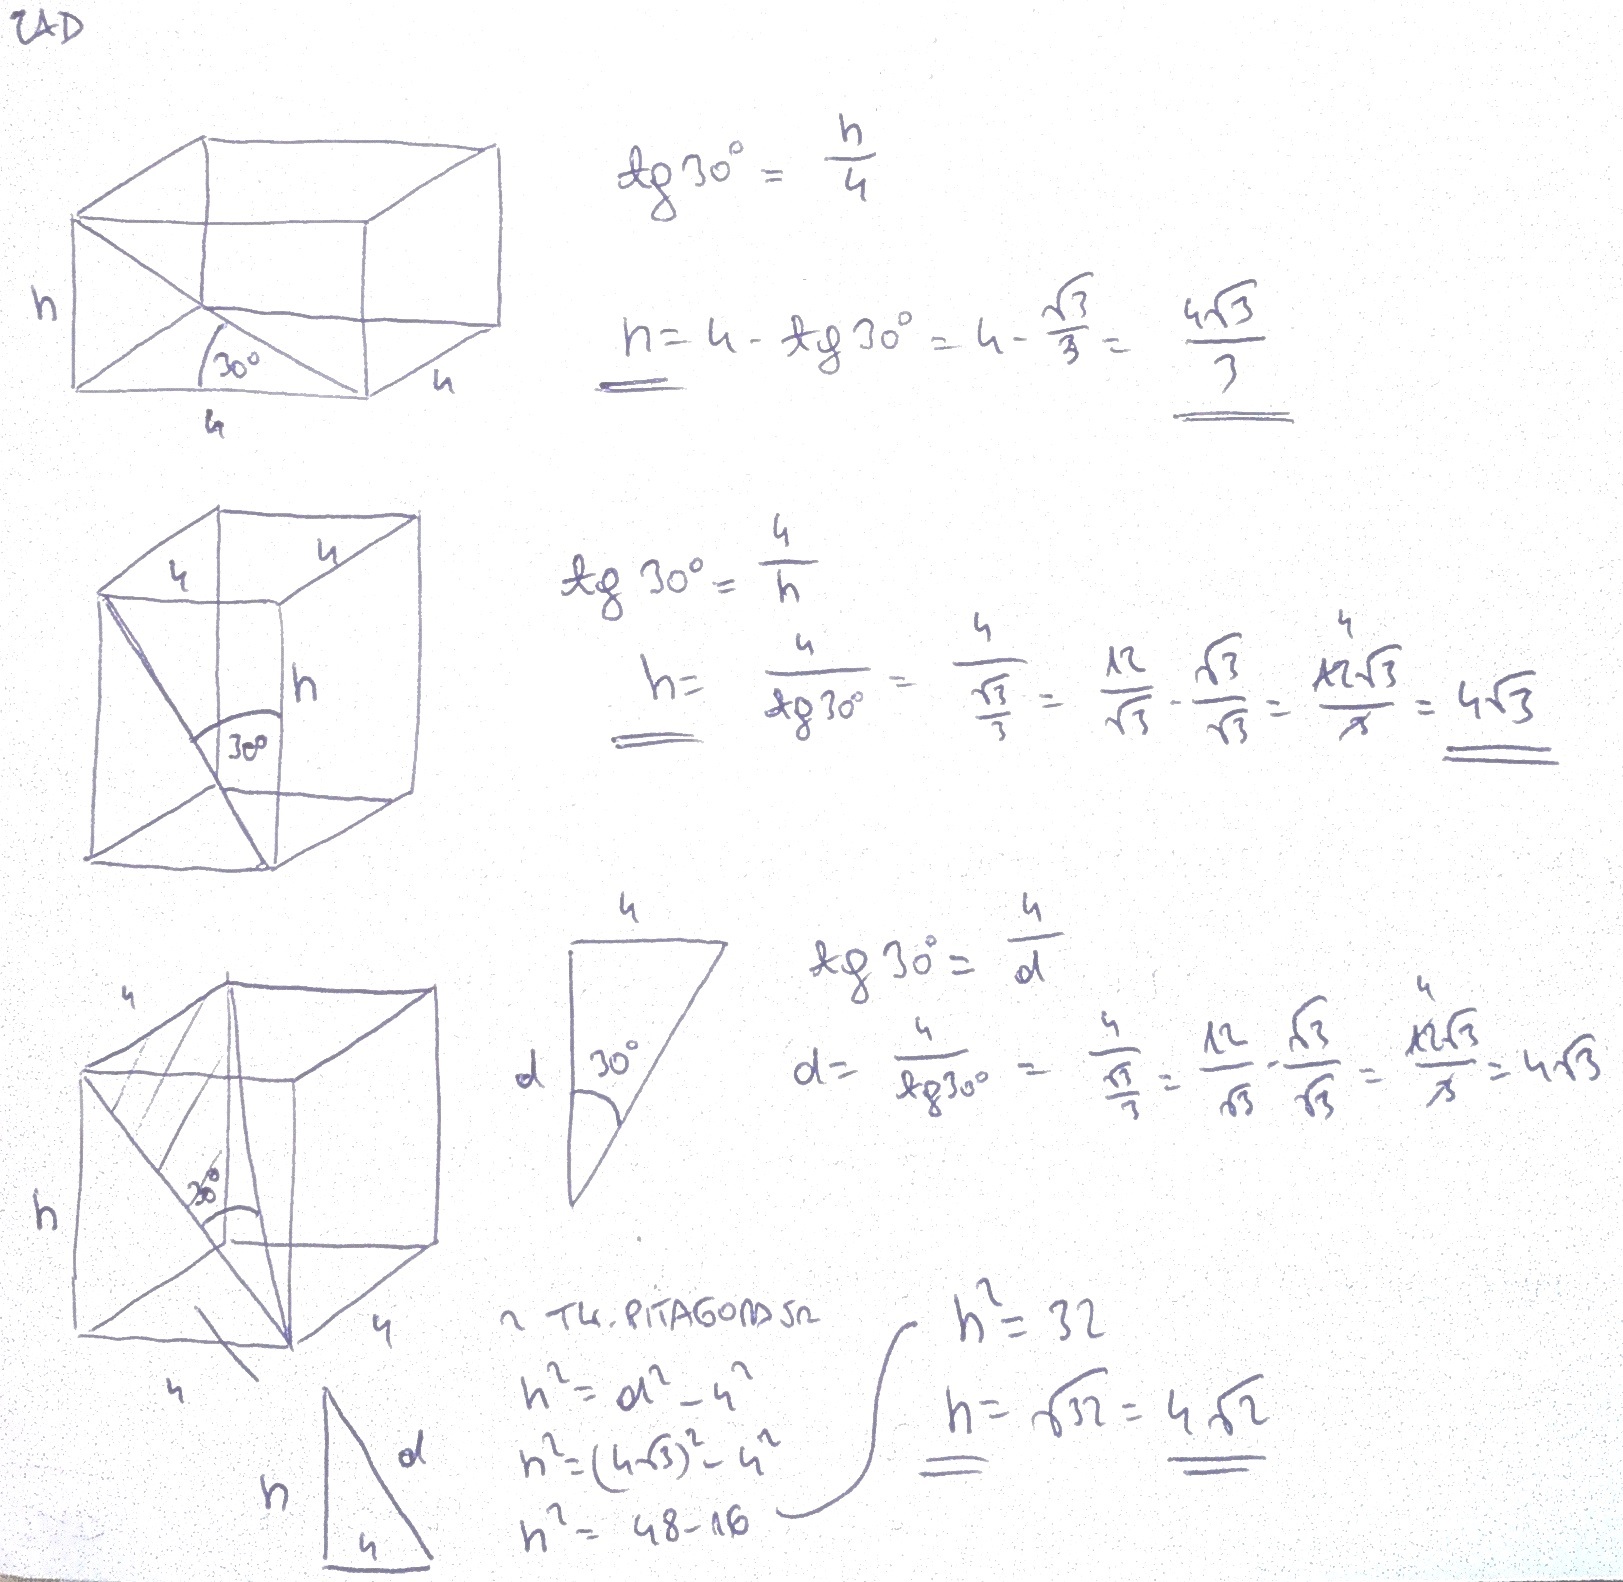 ZAD
h
30°
4
4
tg 30° = h/4
h = 4 · tg 30° = 4 · √3/3 = 4√3/3
4
4
h
30°
tg 30° = 4/h
h = 4/tg 30° = 4/(√3/3) = 12/√3 · √3/√3 = 12√3/3 = 4√3
4
4
h
30°
4
4
4
d
30°
tg 30° = 4/d
d = 4/tg 30° = 4/(√3/3) = 12/√3 · √3/√3 = 12√3/3 = 4√3
h
d
4
z TW. PITAGORASA
h² = d² - 4²
h² = (4√3)² - 4²
h² = 48 - 16
h² = 32
h = √32 = 4√2